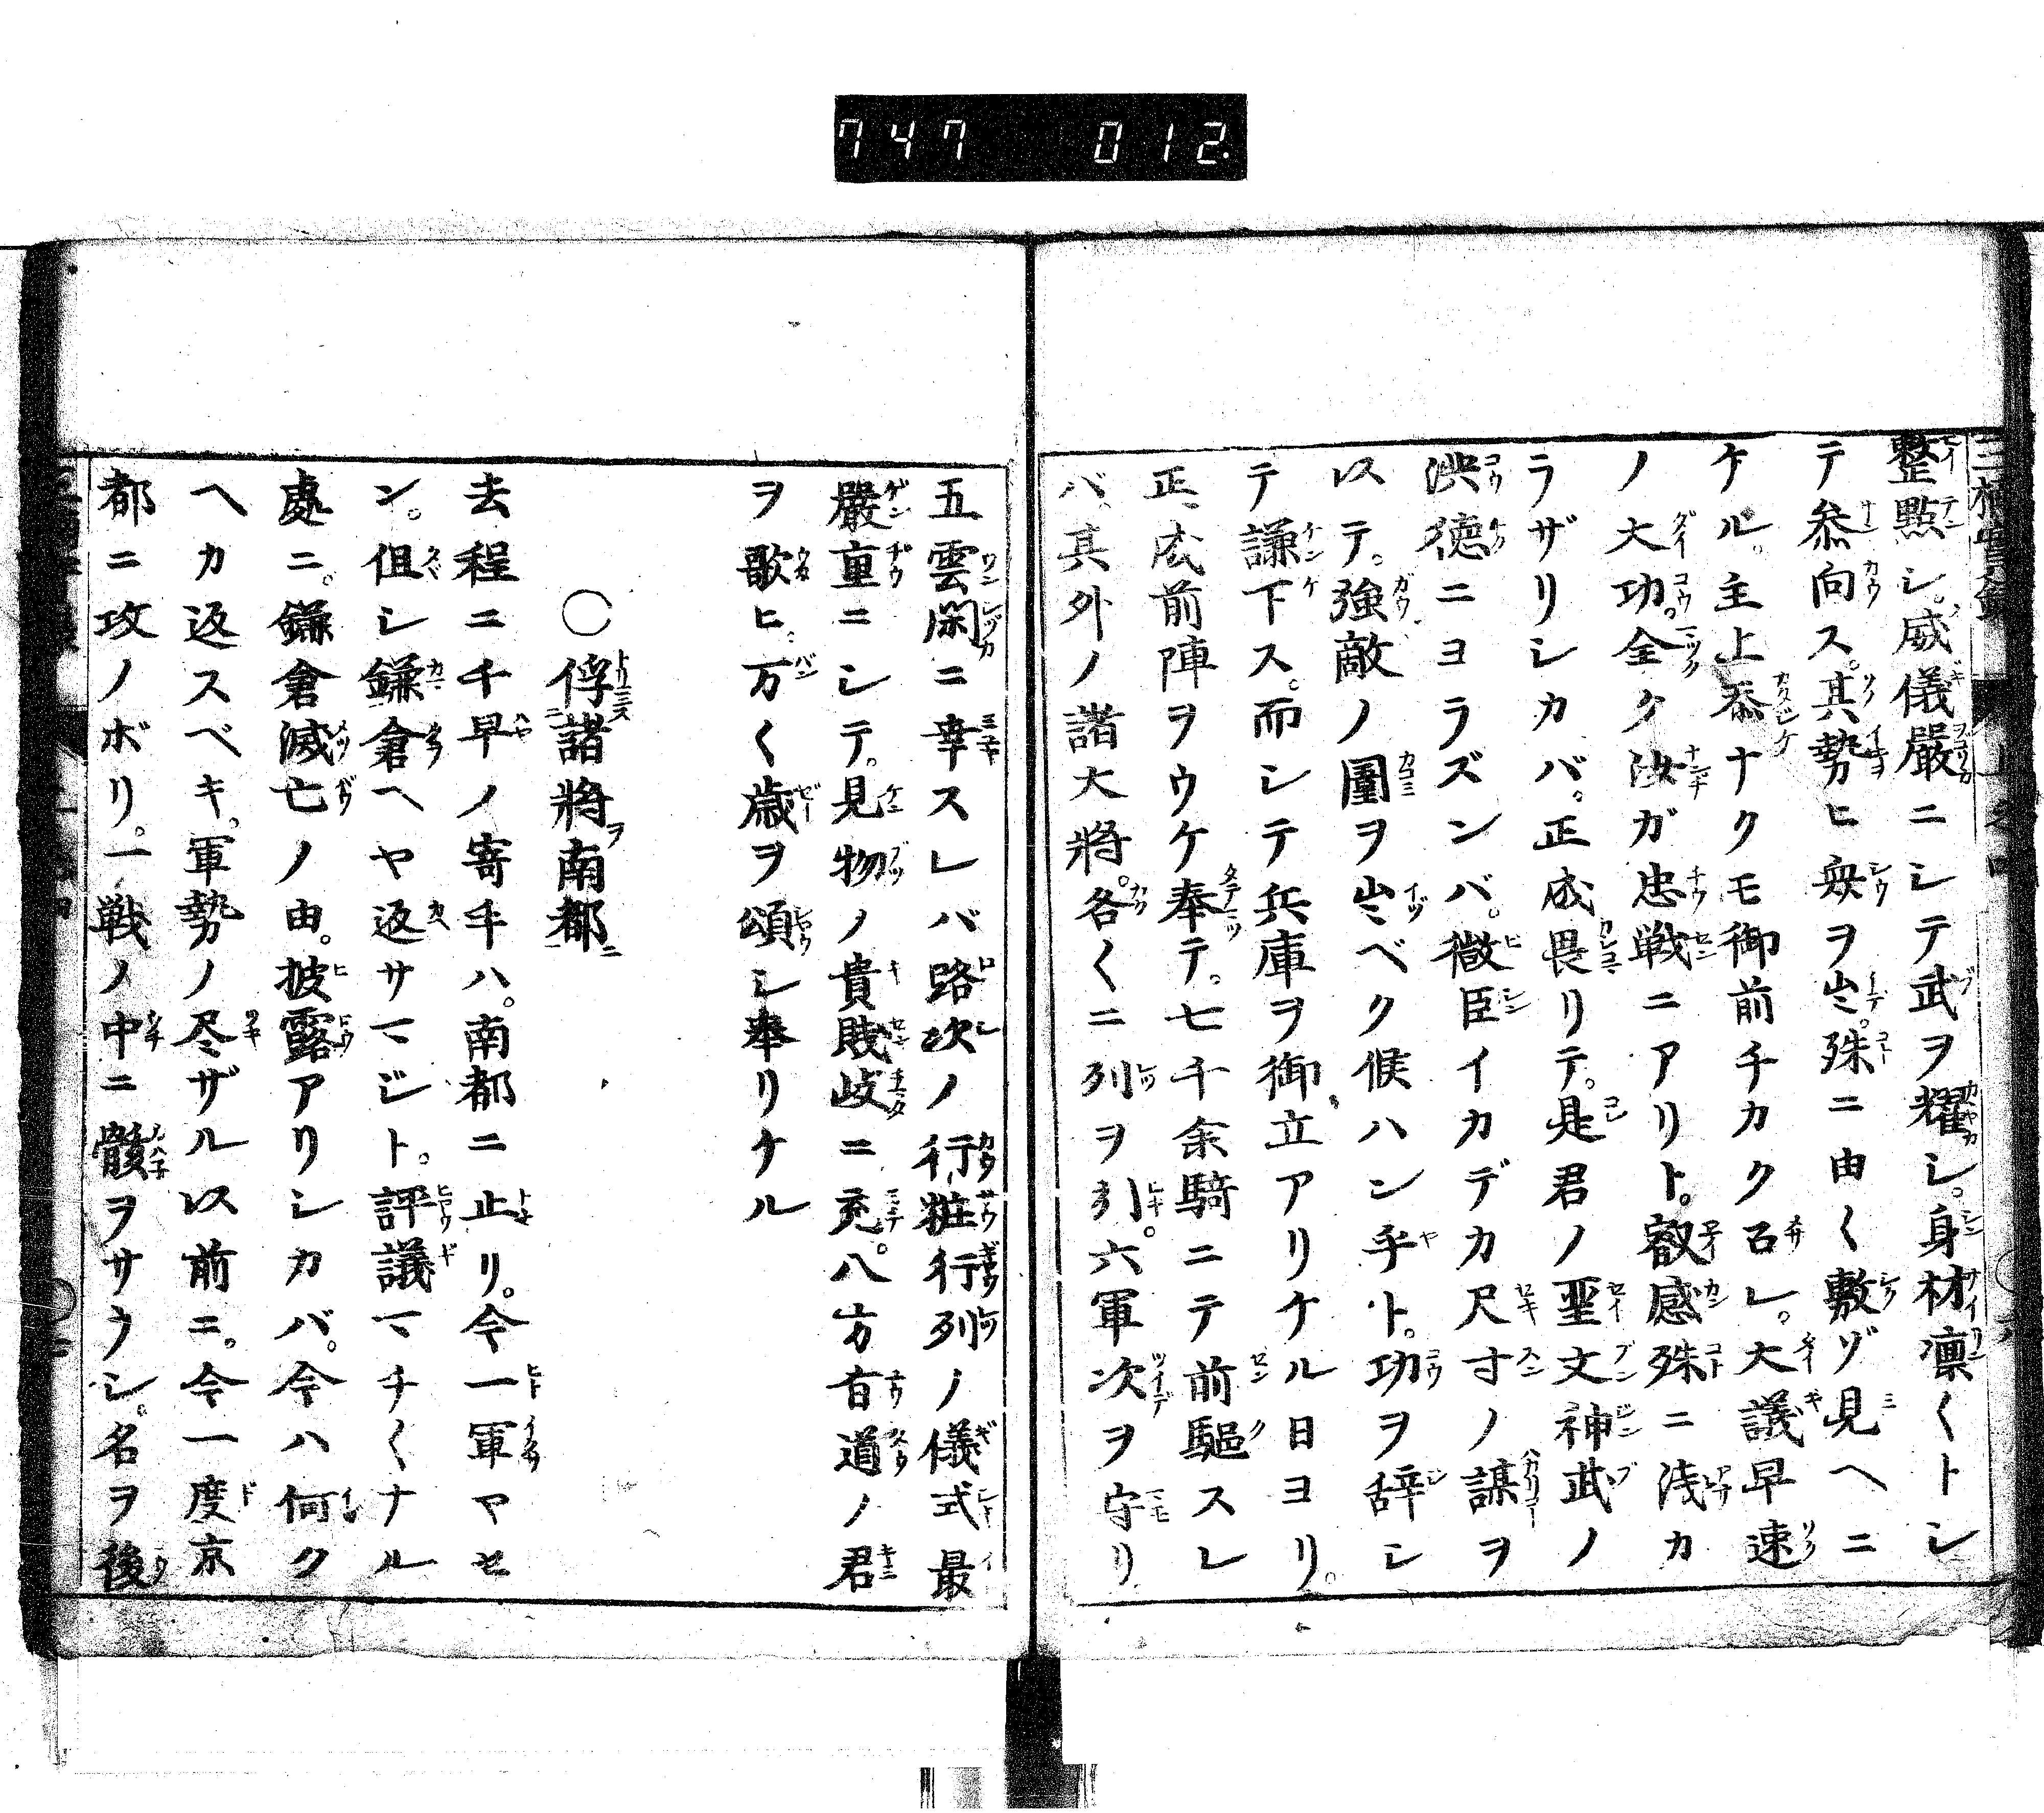 747 012.
整點シ。威儀嚴ニシテ武ヲ耀シ。身材凛〱トシ
テ叅向ス。其勢ヒ衆ヲ出。殊ニ由〱敷ゾ見ヘニ
ケル。主上忝ナクモ御前チカク召レ。大議早速
ノ大功。全ク汝ガ忠戦ニアリト。叡感殊ニ浅カ
ラザリシカバ。正成畏リテ。是君ノ聖文神武ノ
洪徳ニヨラズンバ。微臣イカデカ尺寸ノ謀ヲ
以テ。強敵ノ圍ヲ出ベク候ハン乎ト。功ヲ辞シ
テ謙下ス。而シテ兵庫ヲ御立アリケル日ヨリ。
正成前陣ヲウケ奉テ。七千余騎ニテ前驅スレ
バ、其外ノ諸大将。各〱ニ列ヲ引。六軍次ヲ守リ
五雲閑ニ幸スレバ路次ノ行粧行列ノ儀式最
嚴重ニシテ。見物ノ貴賤岐ニ充。八方有道ノ君
ヲ歌ヒ。万〱歳ヲ頌シ奉リケル
○俘諸將ヲ南都ニ
去程ニ千早ノ寄手ハ。南都ニ止リ。今一軍ヤセ
ン。但シ鎌倉ヘヤ返サマジト。評議マチ〱ナル
處ニ。鎌倉滅亡ノ由。披露アリシカバ。今ハ何ク
ヘカ返スベキ。軍勢ノ尽ザル以前ニ。今一度京
都ニ攻ノボリ。一戦ノ中ニ骸ヲサラシ。名ヲ後